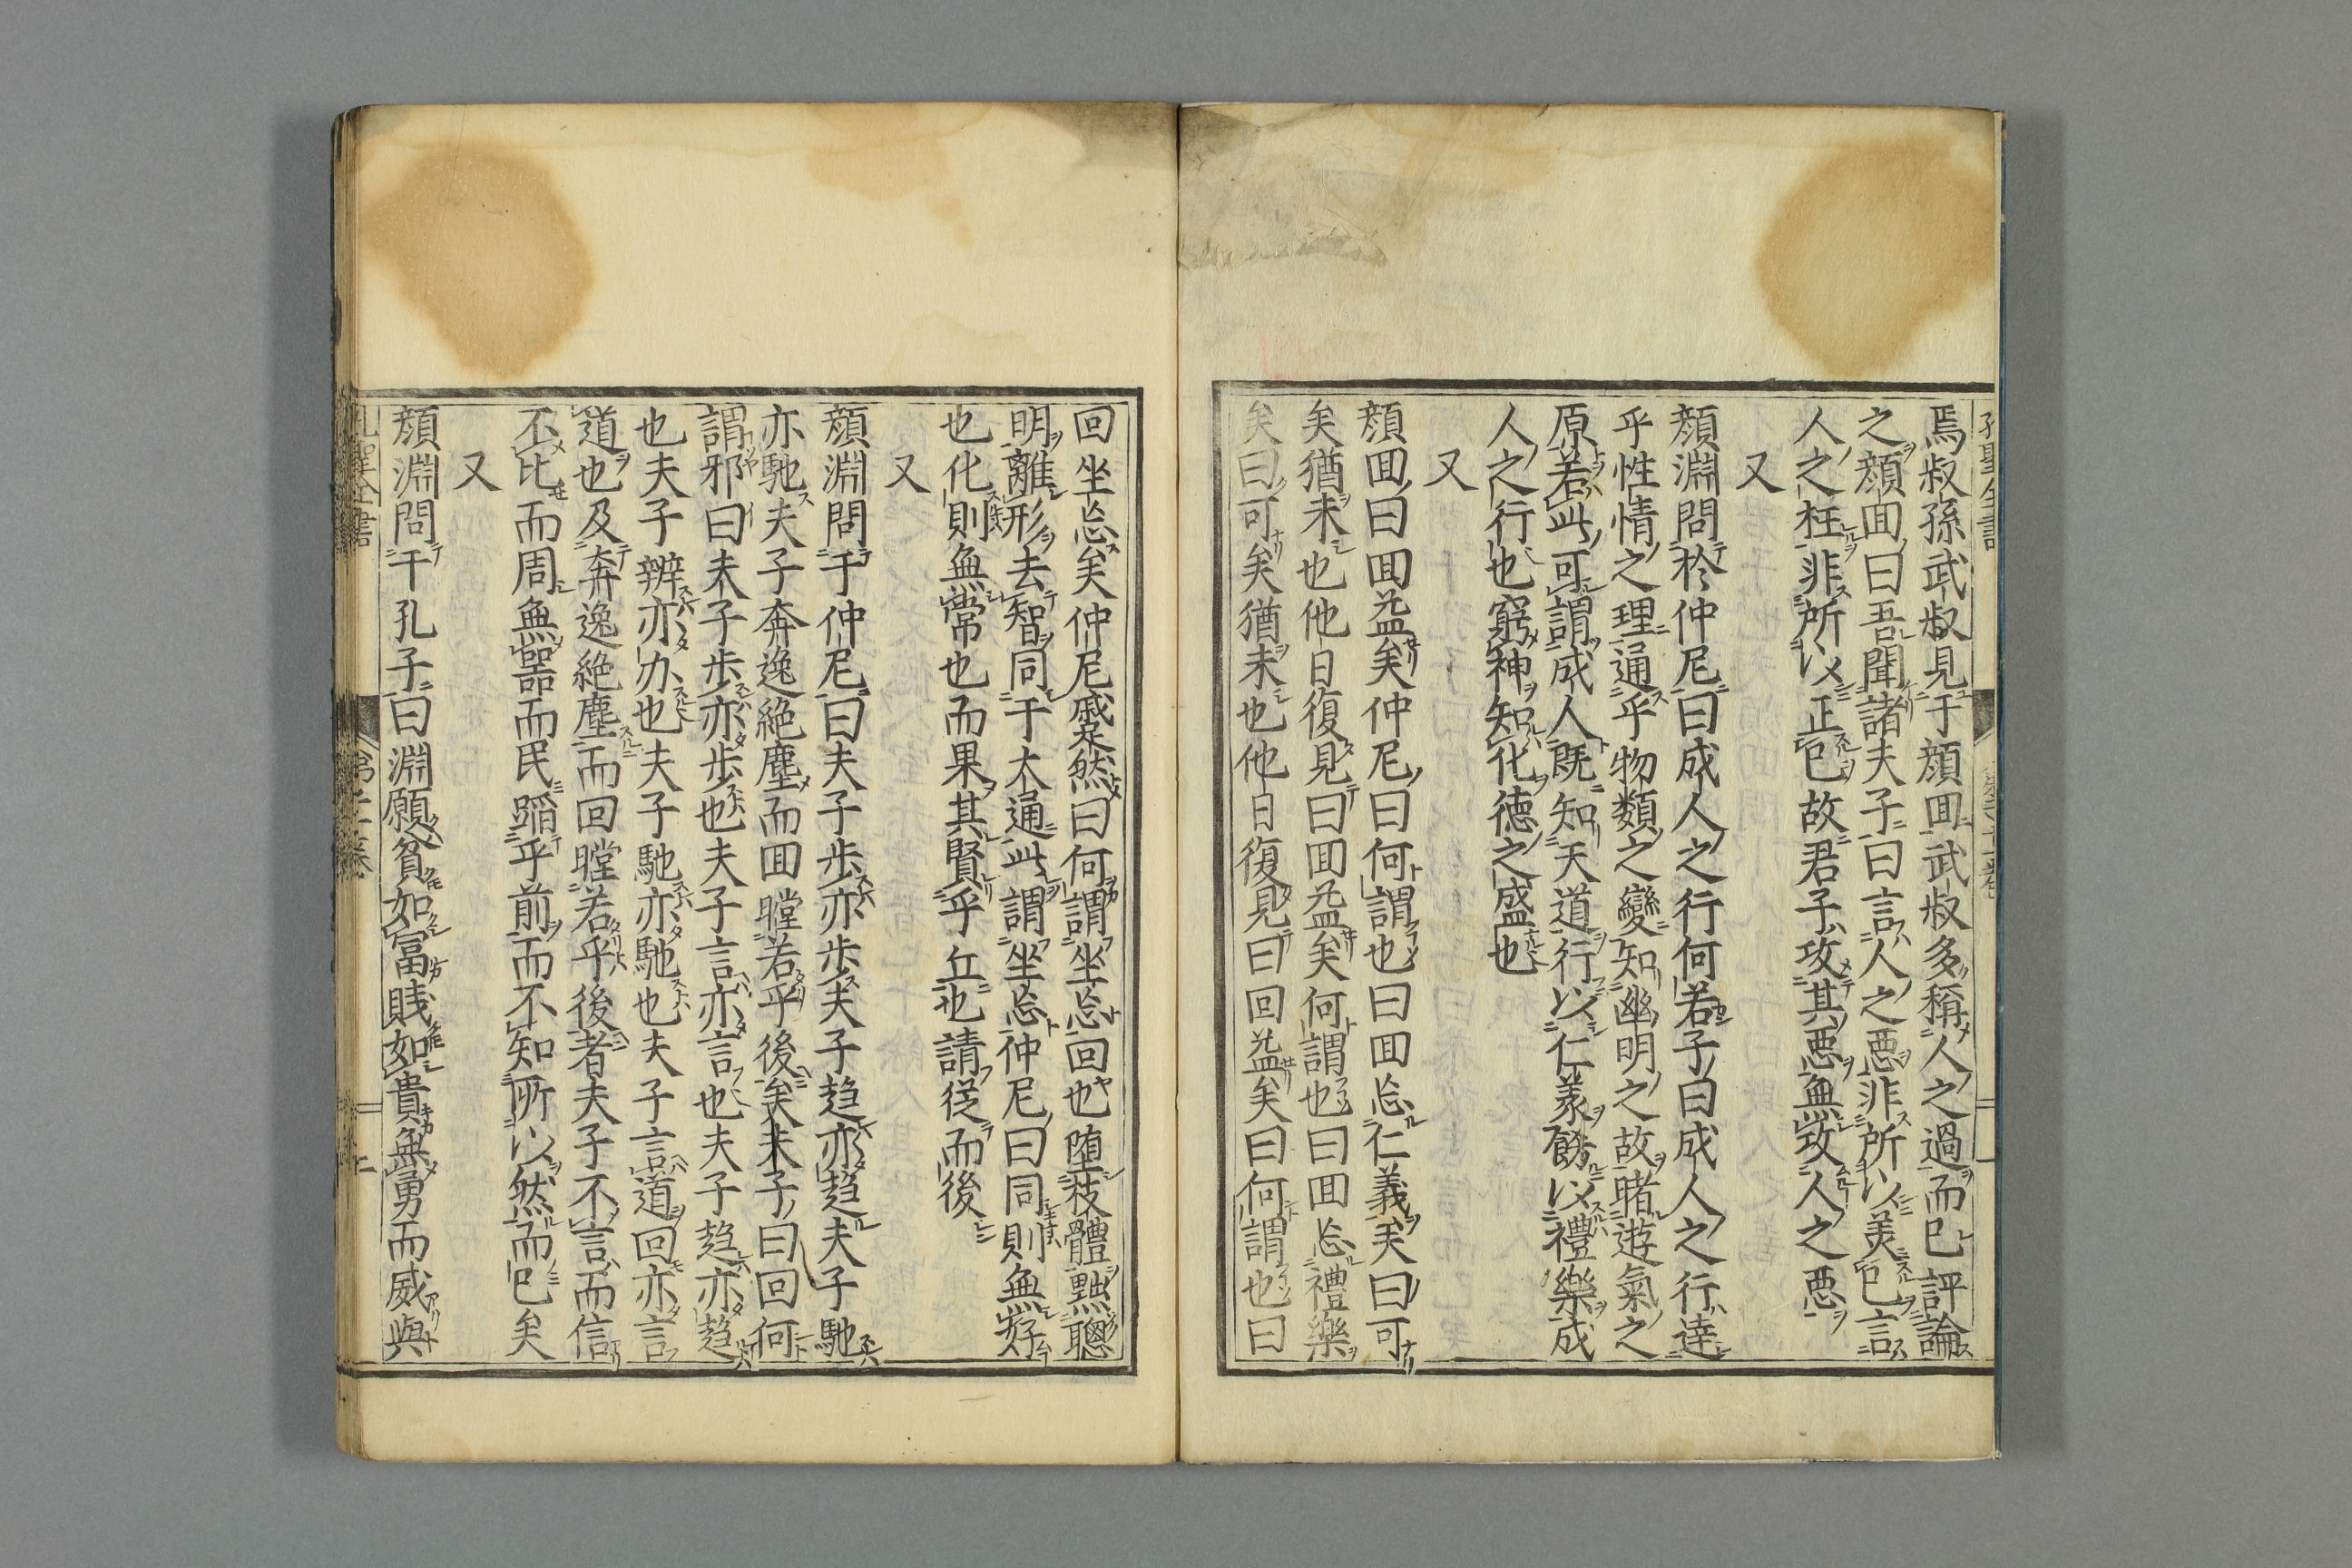 孔聖全書
焉叔孫武叔見于顔囬武叔多稱人之過而巳評論
之顔囬曰吾聞諸夫子曰言人之惡非所以美巳言
人之枉非所以正巳故君子攻其惡無攻人之惡
又
顔淵問於仲尼曰成人之行何若子曰成人之行達
乎性情之理通乎物類之變知幽明之故睹遊氣之
原若此可謂成人既知天道行以仁義飭以禮樂成
人之行也窮神知化德之盛也
又
顔囬曰囬益矣仲尼曰何謂也曰囬忘仁義矣曰可
矣猶未也他日復見曰囬益矣何謂也曰囬忘禮樂
矣曰可矣猶未也他日復見曰回益矣曰何謂也曰
回坐忘矣仲尼蹙然曰何謂坐忘回也堕枝體黜聰
明離形去智同于太通此謂坐忘仲尼曰同則無好
也化則無常也而果其賢乎丘也請従而後
又
顔淵問于仲尼曰夫子歩亦歩夫子趋亦趋夫子馳
亦馳夫子奔逸絶塵而囬瞠若乎後矣夫子曰回何
謂邪曰夫子歩亦歩也夫子言亦言也夫子趋亦趋
也夫子辨亦亦也夫子馳亦馳也夫子言道回亦言
道也及奔逸絶塵而回瞠若乎後者夫子不言而信
不比而周無噐而民蹈乎前而不知所以然而巳矣
又
顔淵問于孔子曰淵願貧如冨賎如貴無勇而威與
孔聖全書